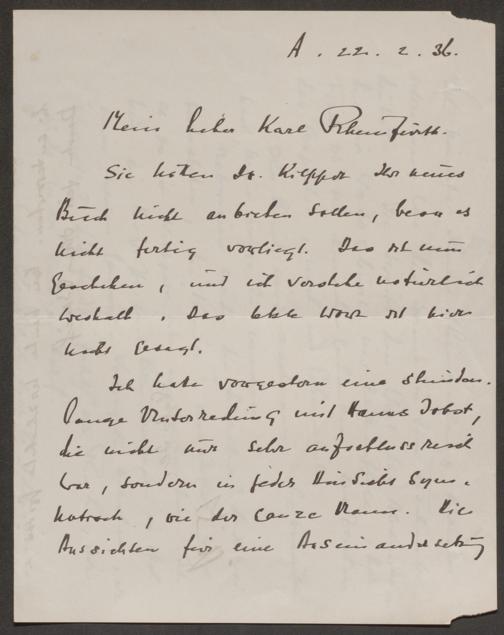 A. 22. 2. 36.
Mein lieber Karl Rhenfürth.
Sie hätten Dr. Kilpper Ihr neues
Buch nicht anbieten sollen, bevor es
nicht fertig vorliegt. Das ist nun
geschehen, und ich verstehe natürlich
weshalb. Das letzte Wort ist hier
nicht gesagt.
Ich hatte vorgestern eine stunden-
lange Unterredung mit Hanns Johst,
die nicht nur sehr aufschlussreich
war, sondern in jeder Hinsicht sym-
pathisch, wie der ganze Mann. Die
Aussichten für eine Auseinandersetzung